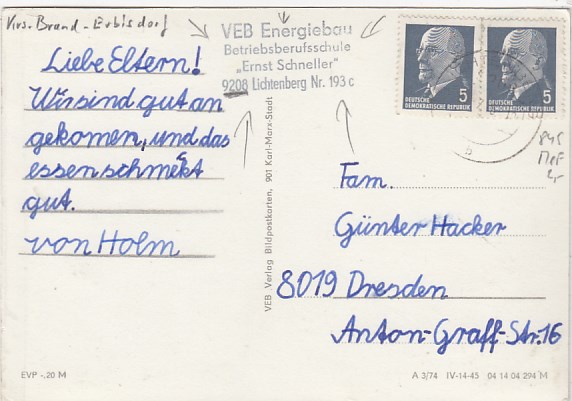 Krs. Brand-Erbisdorf
VEB Energiebau
Betriebsberufsschule
„Ernst Schneller"
9208 Lichtenberg Nr. 193 c
Liebe Eltern!
Wir sind gut an
gekomen, und das
essen schmekt
gut.
von Holm
VEB Verlag Bildpostkarten, 901 Karl-Marx-Stadt
5
DEUTSCHE
DEMOKRATISCHE REPUBLIK
DEUTSCHE
DEMOKRATISCHE REPUBLIK
5
845
MeF
Fam.
Günter Hacker
8019 Dresden
Anton-Graff-Str. 16
EVP -,20 M
A 3/74 IV-14-45 04 14 04 294 M